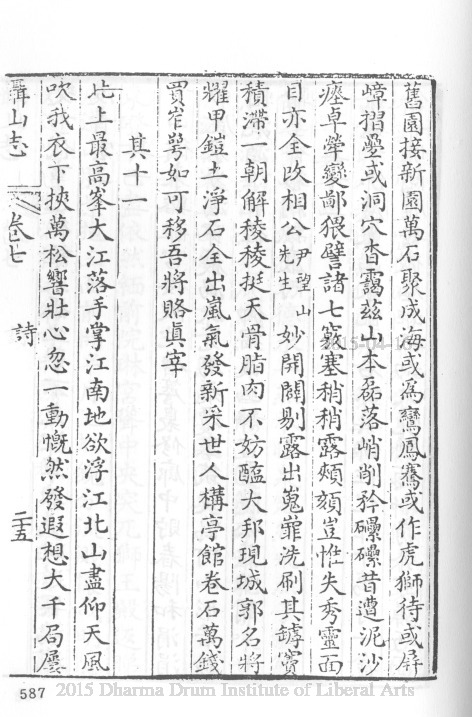 舊園接新園萬石聚成海或為鸞鳳騫或作虎獅待或屏
嶂摺疊或洞穴杳靄茲山本磊落峭削矜礧礧昔遭泥沙
瘞卓犖變鄙猥譬諸七竅塞稍稍露頰頦豈惟失秀靈面
目亦全改相公尹望山先生妙開闢剔露出嵬罪洗刷其罅竇
積滯一朝解稜稜挺天骨脂肉不妨醢大邦現城郭名將
耀甲鎧土淨石全出嵐氣發新采世人構亭館卷石萬錢
買岝崿如可移吾將賂眞宰
其十一
此上最高峯大江落手掌江南地欲浮江北山盡仰天風
吹我衣下挾萬松響壯心忽一動慨然發遐想大千局
山志 卷七 詩 二十五
587 2015 Dharma Drum Institute of Liberal Arts